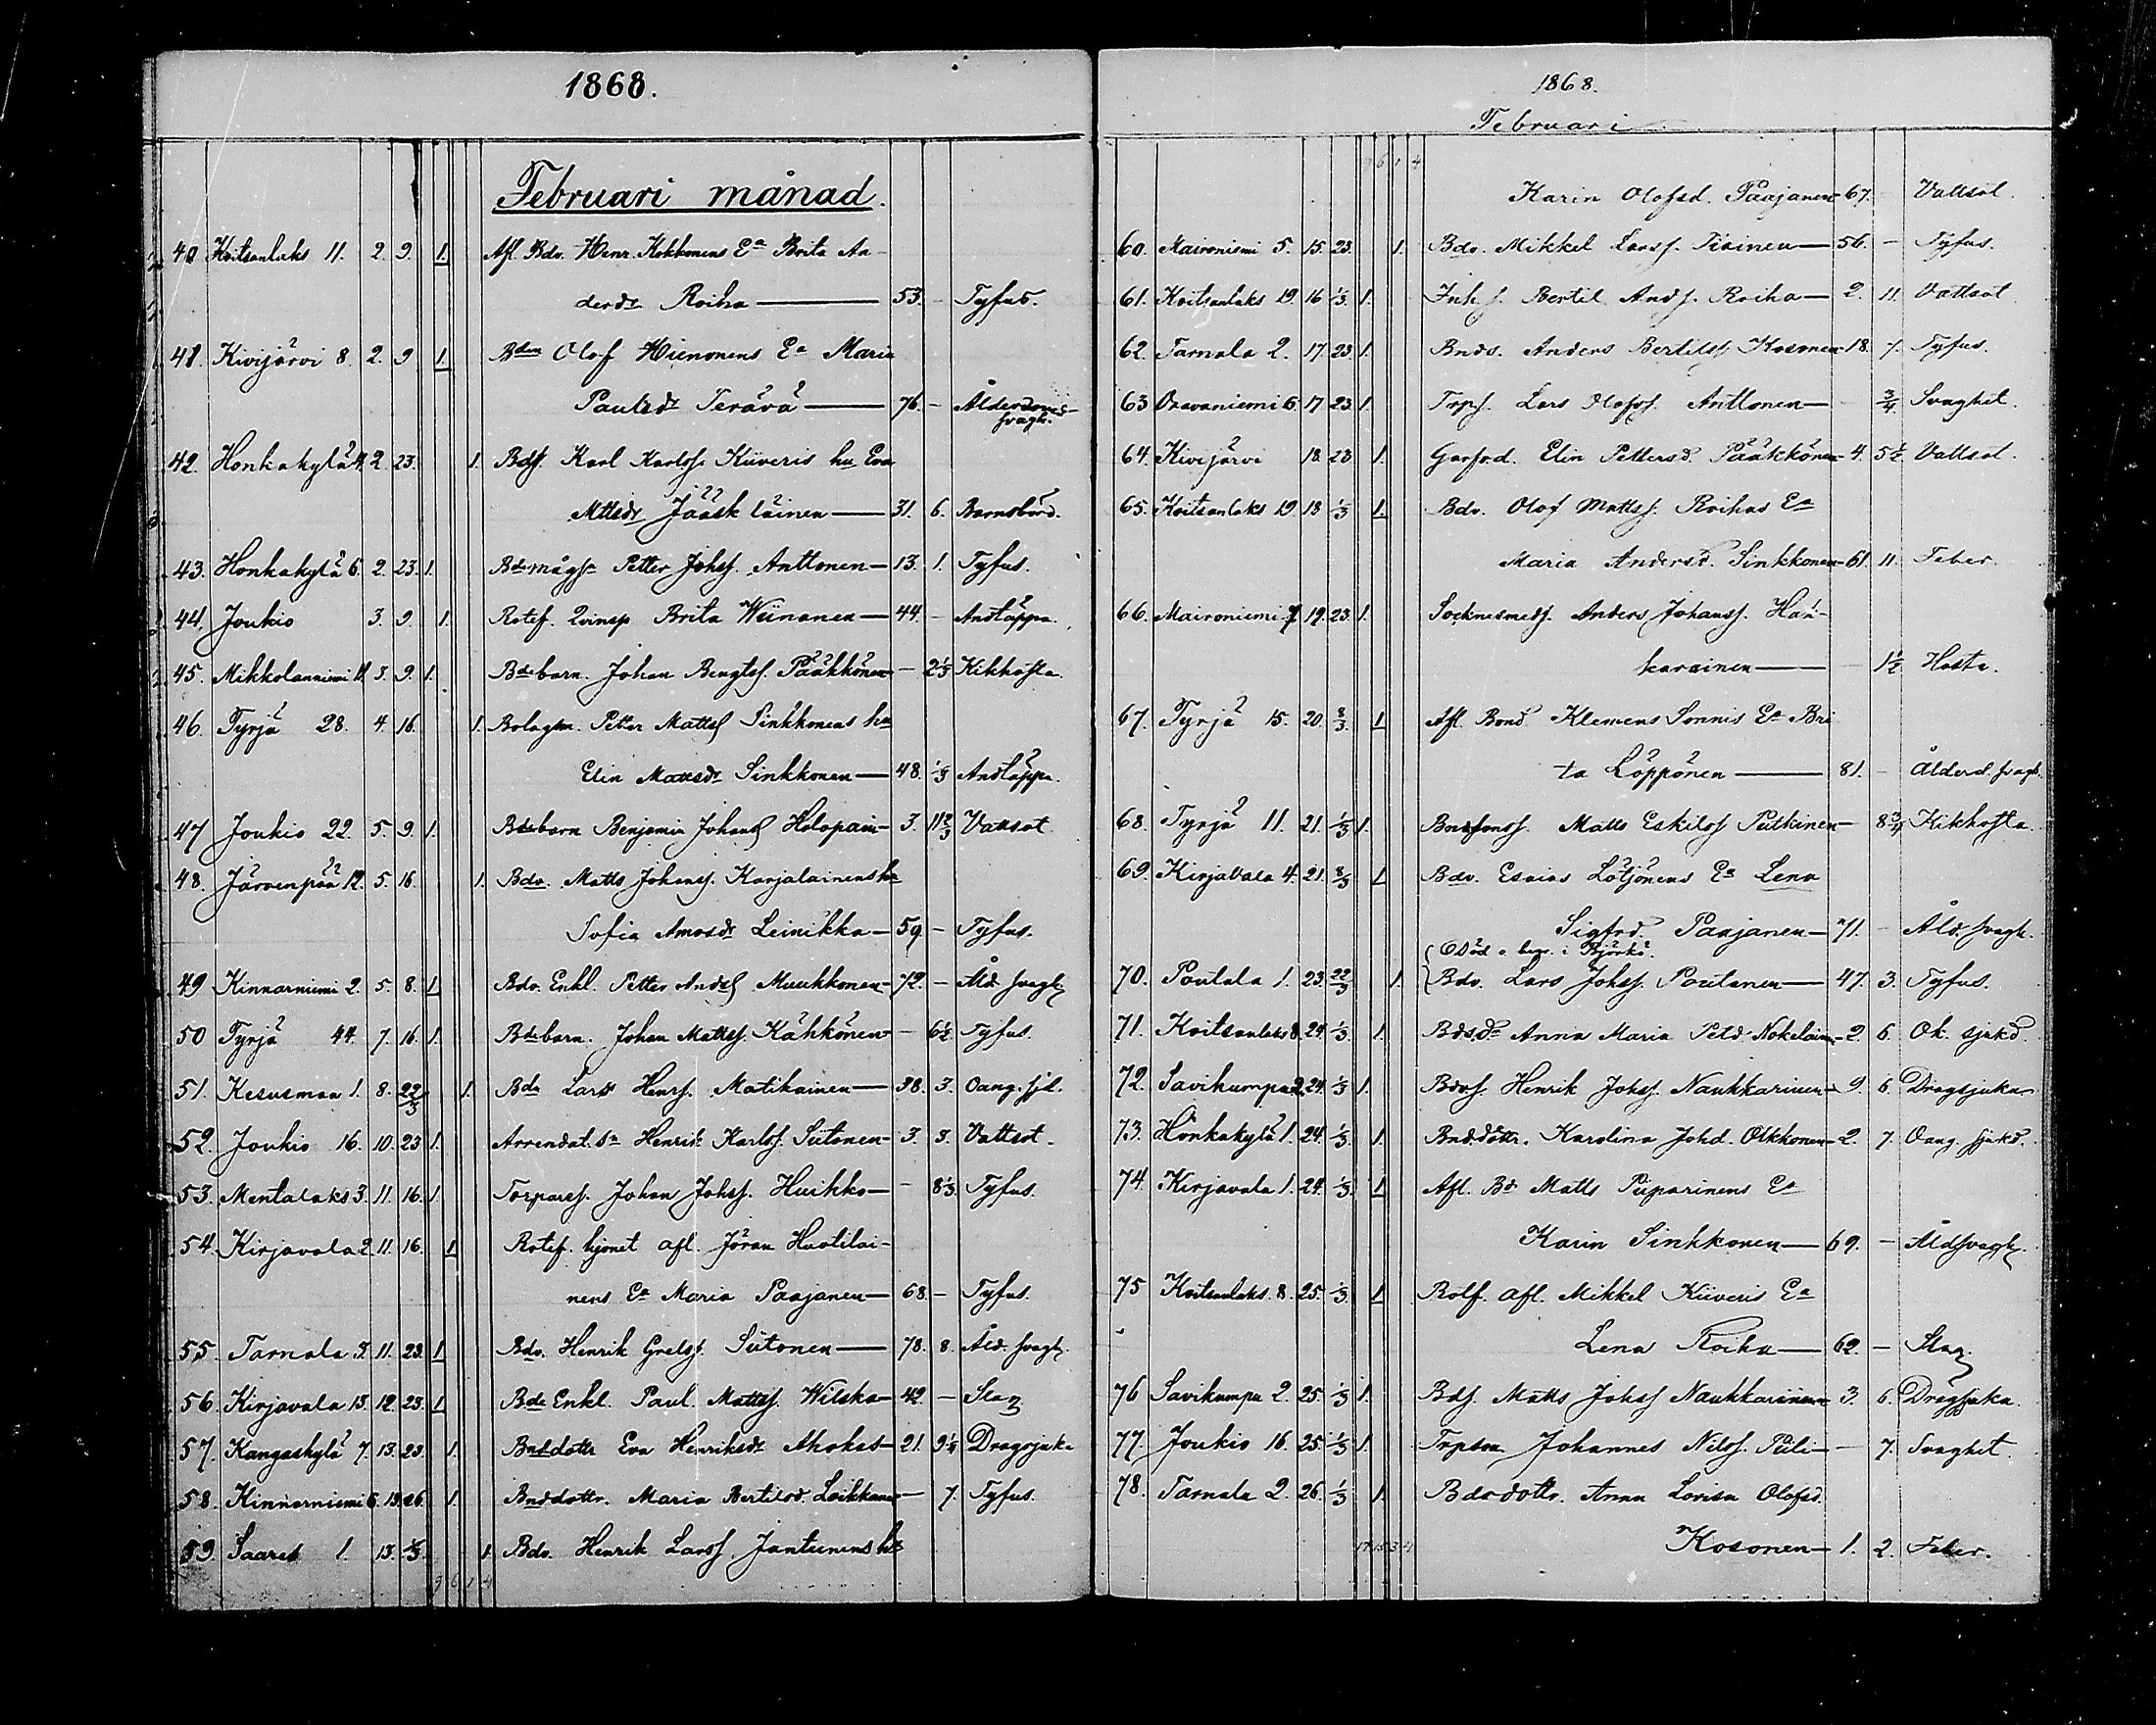 1868.
Februari månad.
40 Koitsanlaks 11. 2. 9. 1. Afl. Bdv. Henr. Kokkonens Ea Brita An-
dersdr Roiha — 53. - Tyfus.
41. Kivijärvi 8. 2. 9 1. Bdm Olof Hienonens Ea Maria
Paulsdr Terävä — 76. - Ålderdoms-
svagh.
42. Honkakylä 4. 2. 23. 1. Bdss. Karl Karlss. Kiiveris hu Eva
Mttsdr Jääskläinen — 31. 6. Barnsbörd.
43. Honkakylä 6. 2. 23. 1. Bdemågsn Petter Johss. Anttonen — 13. 1. Tyfus.
44. Joukio 3. 9. 1. Rotef. qvinsp Brita Wiinanen — 44. - Andtäppa.
45. Mikkolanniemi 11. 3. 9. 1. Bdebarn. Johan Bengtss. Pääkkönen — - 2 1/3 Kikhosta.
46 Tyrjä 28. 4. 16. 1. Bolagsm. Petter Mattss Sinkkonens hu
Elin Mattsdr Sinkkonen — 48. 1/3 Andtäppa.
47 Joukio 22. 5. 9. 1. Bdebarn Benjamin Johanss Holopain- 3. 11 2/3 Vattsot.
48. Järvenpää 12. 5. 16. 1. Bdv. Matts Johanss. Karjalainens hu
Sofia Amosdr Leinikka — 59. - Tyfus.
49 Kinnarniemi 2. 5. 8. 1. Bdv. Enkl. Petter Andss Muukkonen — 72. - Åld. svagh.
50 Tyrjä 44. 7. 16. 1. Bdebarn. Johan Mattss. Kähkönen — - 6 1/2 Tyfus.
51. Kesusmaa 1. 8. 22/3 1. Bde Lars Henrs. Matikainen — 38. 3. Oang. sjd.
52. Joukio 16. 10. 23 1. Arrendat. sn Henrik Karlss. Siitonen — 3. 3. Vattsot.
53. Mentalaks 3. 11. 16. 1. Torparess. Johan Johss. Huikko — - 8 1/3. Tyfus.
54. Kirjavala 2. 11. 16. 1. Rotef. hjonet afl. Jöran Huotilai-
nens Ea Maria Paajanen — 68. - Tyfus.
55. Tarnala 3. 11. 23. 1. Bdv. Henrik Grelss. Siitonen — 78. 8. Åld. svagh.
56. Kirjavala 13. 12. 23. 1. Bde Enkl. Paul Mattss. Wilska — 42. - Slag
57. Kangaskylä 7. 13. 23. 1. Bnddottr Eva Henriksdr Ahokas — 21. 9 1/4 Dragsjuka
58. Kinnarniemi 6. 13. 26. 1. Bnddottr. Maria Bertilsd. Loikkanen — - 7. Tyfus.
59. Saares 1. 13. 1/3. 1. Bdv. Henrik Larss Jantunens hu
9 6 1 4
1868.
Februari
9 6 1 4
Karin Olofsd. Paajanen — 67. - Vattsot.
60. Maironiemi 5. 15. 23. 1. Bdv. Mikkel Larss. Tiainen — 56. - Tyfus.
61. Koitsanlaks 19. 16 1/3 1. Inh. s. Bertil Ands. Roiha — 2. 11. Vattsot
62. Tarnala 2. 17. 23 1. Bnds. Anders Bertilss Kosonen — 18. 7. Tyfus.
63 Oravaniemi 6. 17 23. 1. Trps. Lars Olofss. Anttonen — - 3/4 Svaghet.
64. Kivijärvi 18. 23 1. Garfvd. Elin Pettersd. Pääkkönen — 4. 5 1/2 Vattsot.
65. Koitsanlaks 19. 18 1/3 1. Bdv. Olof Mattss. Roihas Ea
Maria Andersd. Sinkkonen — 61. 11. Feber.
66. Maironiemi 7. 19. 23. 1. Socknesmeds. Anders Johanss. Hau-
karainen — - 1 1/2 Hosta.
67. Tyrjä 15. 20. 8/3. 1 Afl. Bond Klemens Sonnis Ea Bri
ta Löppönen — 81. - Ålderd. svagh.
68. Tyrjä 11. 21. 1/3 1. Bndsonss. Matts Eskilss Putkinen — 8 3/4 Kikhosta.
69. Kirjavala 4. 21. 8/3 1 Bdv. Esaias Lötjönens Ea Lena
Sigfrd. Paajanen — 71. - Åld. svagh.
(Död o. begr. i Björkö.
70. Poutala 1. 23. 22/3 1. Bdv. Lars Johss. Poutanen — 47. 3. Tyfus.
71. Koitsanlaks 8. 24. 1/3. 1. Bds. dr Anna Maria Petd Nokelainen — 2. 6. Ok. sjukd.
72. Savikumpu 2. 24. 1/3 1. Bdss. Henrik Johss. Naukkarinen — 9. 6. Dragsjuka
73. Honkakylä 1. 24. 1/3. 1. Bnddottr. Karolina Johd. Olkkonen — 2. 7. Oang. sjukd.
74. Kirjavala 1. 24. 1/3. 1 Afl. Bd Matts Piiparinens Ea
Karin Sinkkonen — 69. - Åldsvagh.
75 Koitsanlaks. 8. 25. 1/3. 1 Rotf. afl. Mikkel Kiiveris Ea
Lena Roiha — 62. - Slag.
76 Savikumpu 2. 25. 1/3 1. Bds. Matts Johss Naukkarinen — 3. 6. Dragsjuka.
77. Joukio 16. 25. 1/3 1. Trpson Johannes Nilss. Puli — - 7. Svaghet.
78. Tarnala 2. 26. 1/3 1. Bdedottr. Anna Lovisa Olofsd.
Kosonen — 1. 2. Feber.
17 15 3 4